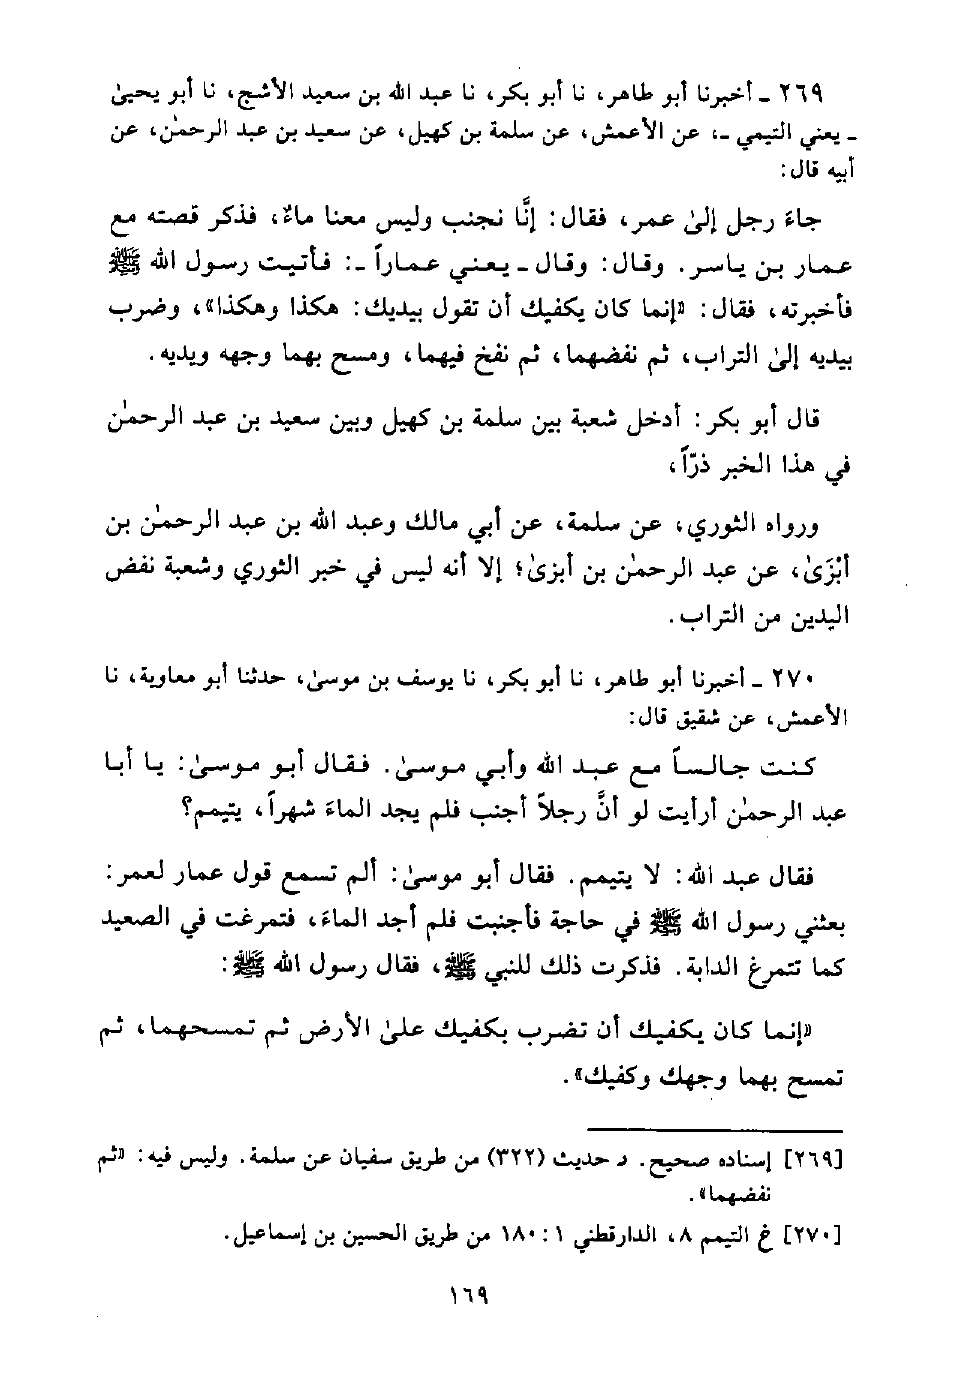 ٢٦٩ ـ أخبرنا أبو طاهر، نا أبو بكر، نا عبد الله بن سعيد الأشج، نا أبو يحيىٰ
ـ يعني التيمي ـ، عن الأعمش، عن سلمة بن كهيل، عن سعيد بن عبد الرحمٰن، عن
أبيه قال:
جاءَ رجل إلىٰ عمر، فقال: إنَّا نجنب وليس معنا ماءٌ، فذكر قصته مع
عمار بن ياسر. وقال: وقال ـ يعني عماراً ـ: فأتيت رسول الله ﷺ
فأخبرته، فقال: «إنما كان يكفيك أن تقول بيديك: هكذا وهكذا»، وضرب
بيديه إلىٰ التراب، ثم نفضهما، ثم نفخ فيهما، ومسح بهما وجهه ويديه.
قال أبو بكر: أدخل شعبة بين سلمة بن كهيل وبين سعيد بن عبد الرحمٰن
في هذا الخبر ذرّاً،
ورواه الثوري، عن سلمة، عن أبي مالك وعبد الله بن عبد الرحمٰن بن
أبْزَىٰ، عن عبد الرحمٰن بن أبزىٰ؛ إلا أنه ليس في خبر الثوري وشعبة نفض
اليدين من التراب.
٢٧٠ ـ أخبرنا أبو طاهر، نا أبو بكر، نا يوسف بن موسىٰ، حدثنا أبو معاوية، نا
الأعمش، عن شقيق قال:
كنت جالساً مع عبد الله وأبي موسىٰ. فقال أبو موسىٰ: يا أبا
عبد الرحمٰن أرأيت لو أنَّ رجلاً أجنب فلم يجد الماءَ شهراً، يتيمم؟
فقال عبد الله: لا يتيمم. فقال أبو موسىٰ: ألم تسمع قول عمار لعمر:
بعثني رسول الله ﷺ في حاجة فأجنبت فلم أجد الماءَ، فتمرغت في الصعيد
كما تتمرغ الدابة. فذكرت ذلك للنبي ﷺ، فقال رسول الله ﷺ:
«إنما كان يكفيك أن تضرب بكفيك علىٰ الأرض ثم تمسحهما، ثم
تمسح بهما وجهك وكفيك».
[٢٦٩] إسناده صحيح. د حديث (٣٢٢) من طريق سفيان عن سلمة. وليس فيه: «ثم
نفضهما».
[٢٧٠] خ التيمم ٨، الدارقطني ١: ١٨٠ من طريق الحسين بن إسماعيل.
١٦٩